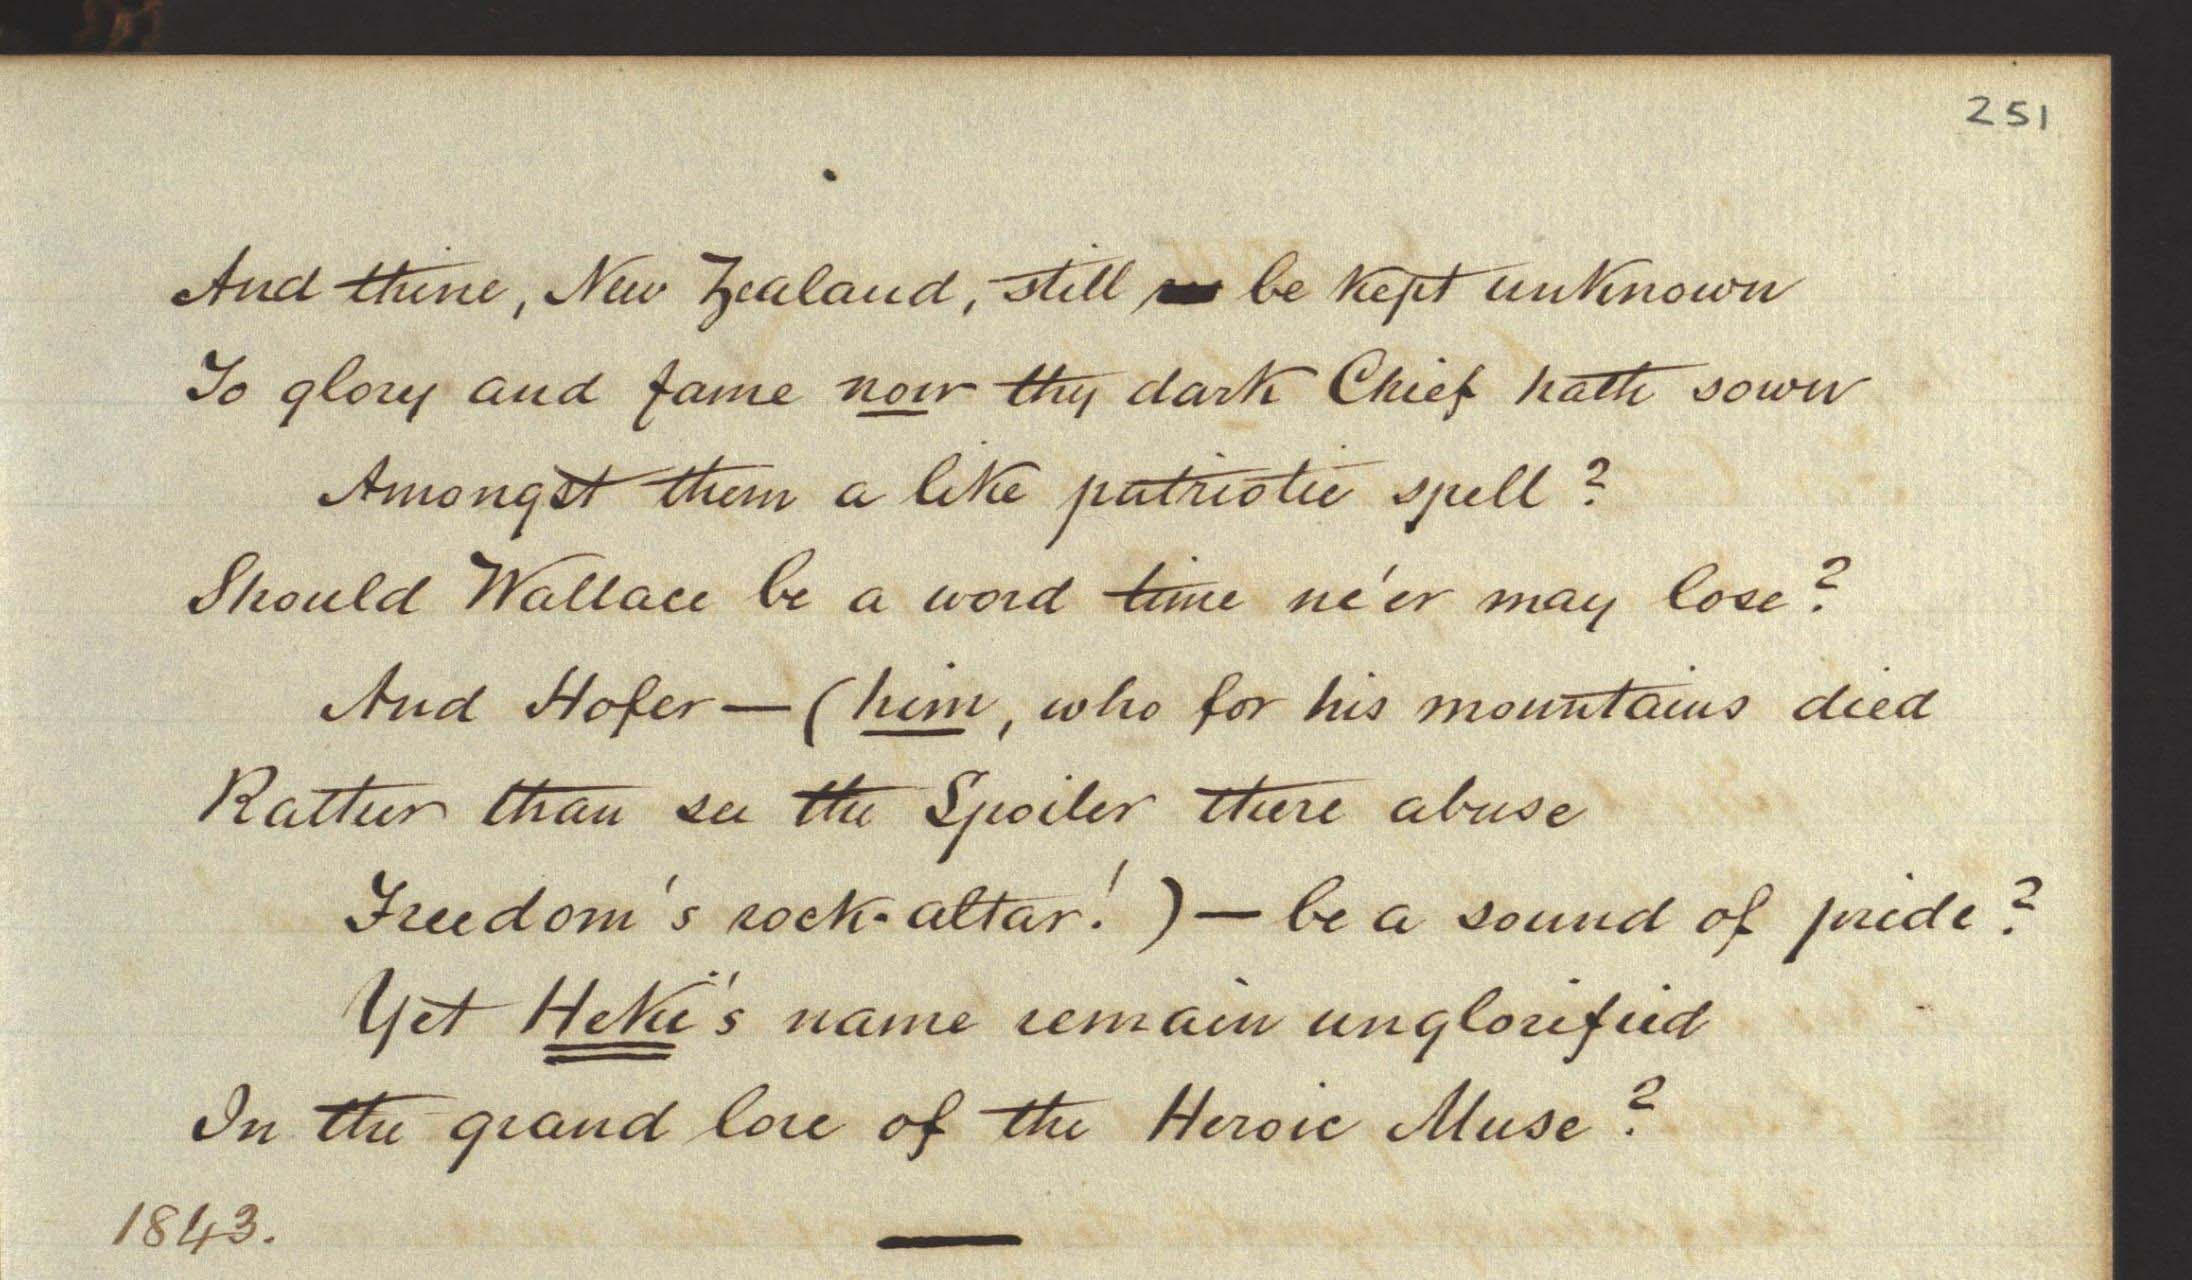 251
And thine, New Zealand, still be kept unknown
To glory and fame now thy dark Chief hath sown
Amongst them a like patriotic spell?
Should Wallace be a word time ne'er may lose?
And Hofer — (him, who for his mountains died
Rather than see the Spoiler there abuse
Freedom's rock-altar!) — be a sound of pride?
Yet Heki's name remain unglorified
In the grand lore of the Heroic Muse?
1843.